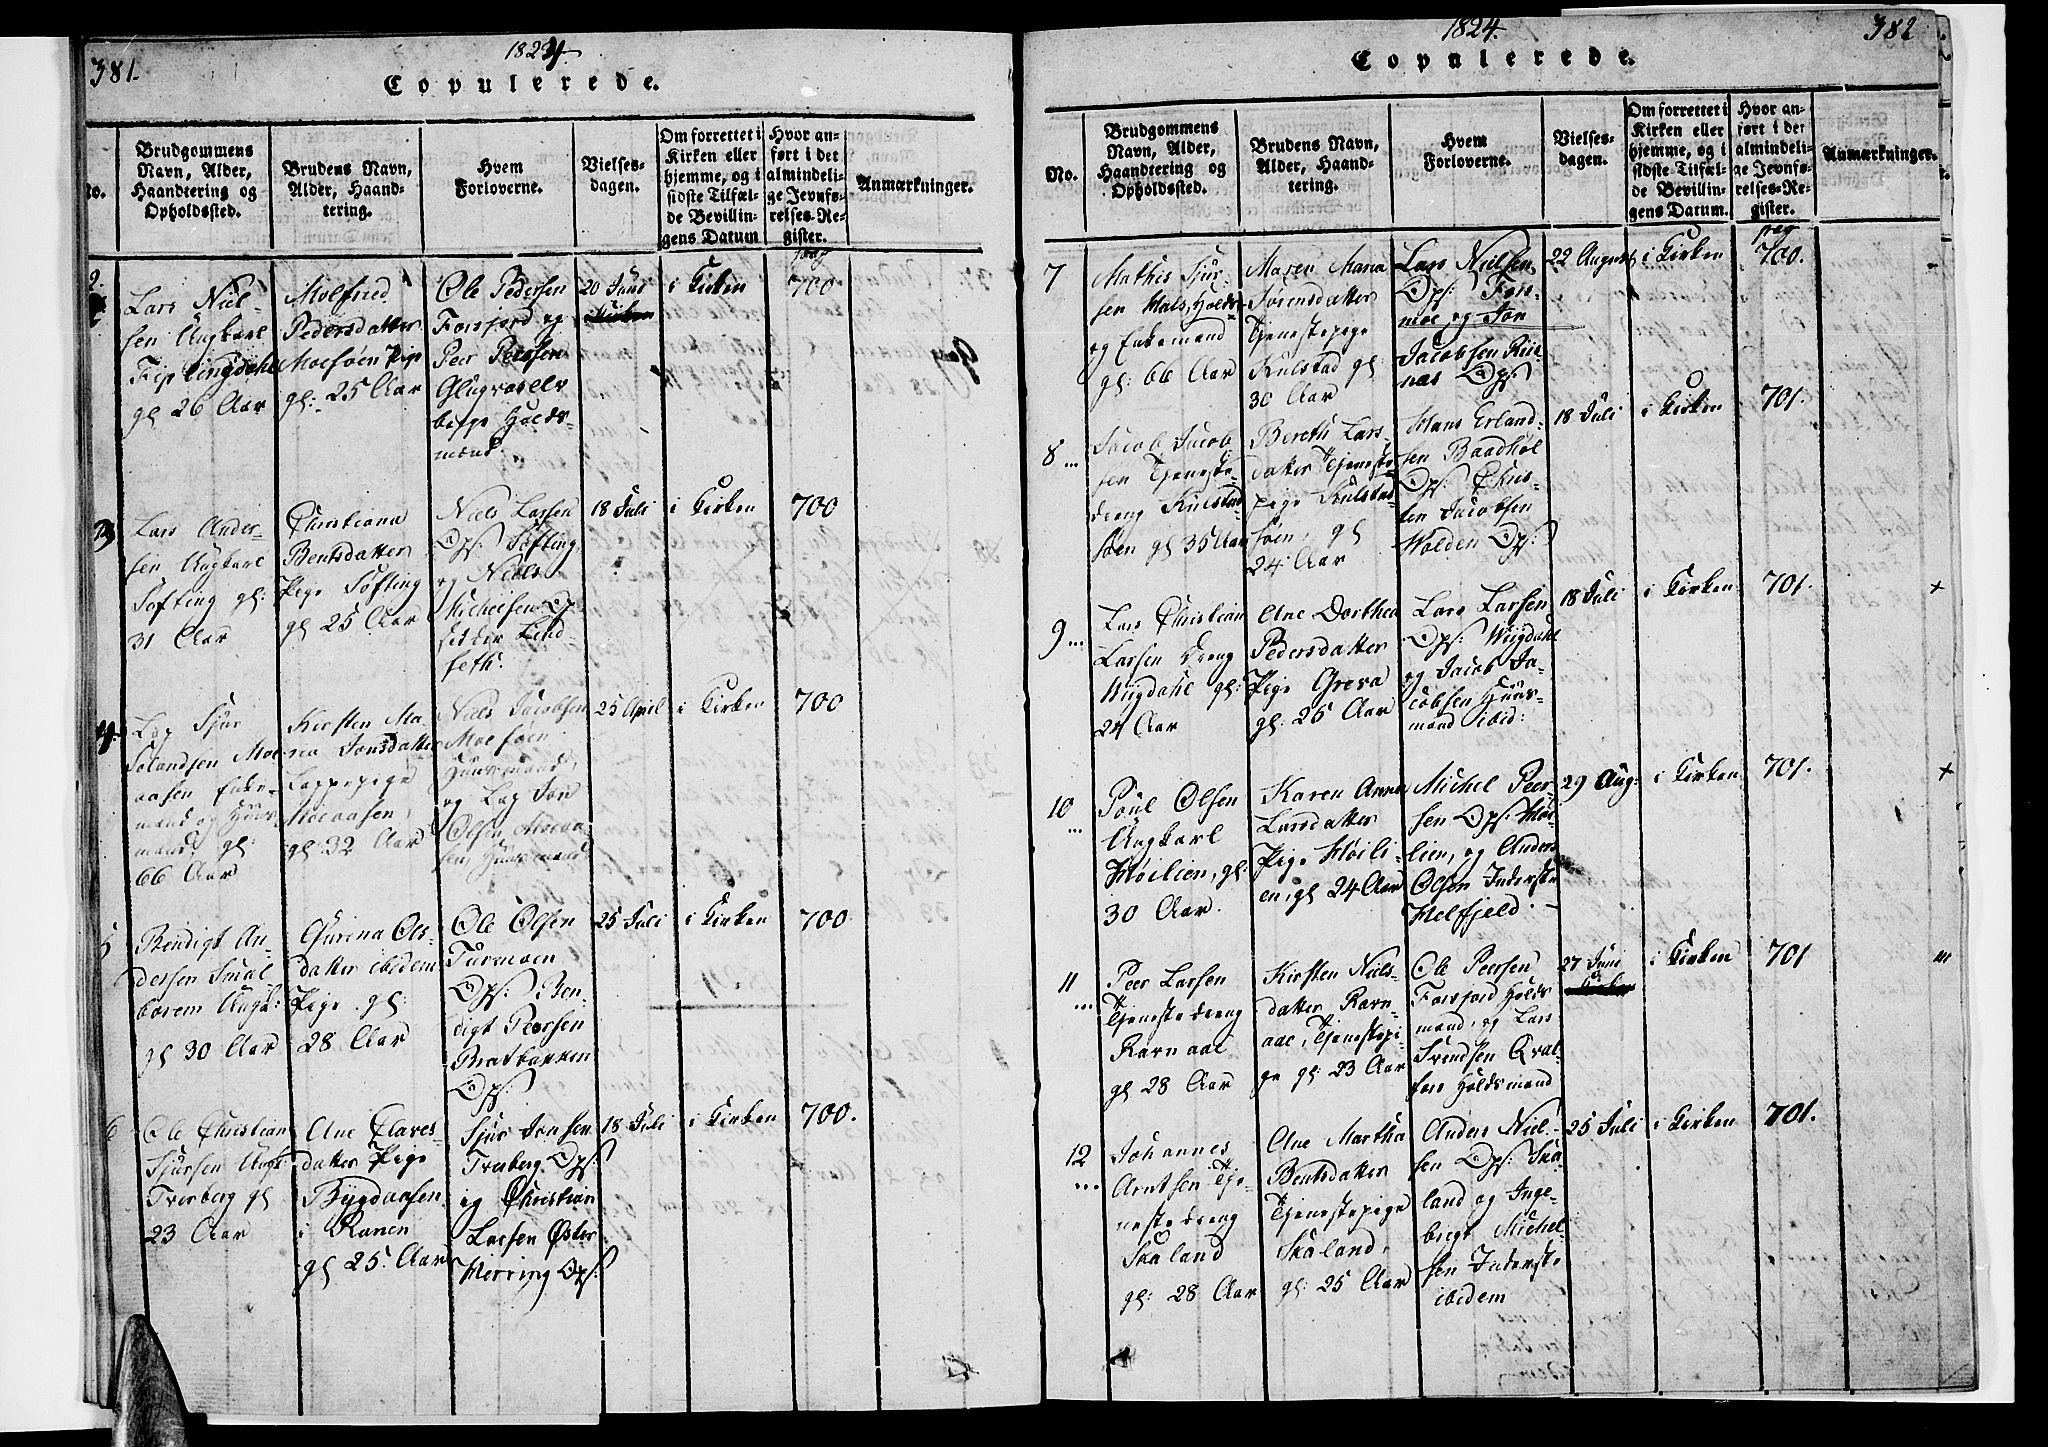 381.
1824.
Copulerede.
No.
Brudgommens
Navn, Alder,
Haandtering og
Opholdssted.
Brudens Navn,
Alder, Haand-
tering.
Hvem
Forloverne.
Vielses-
dagen.
Om forrettet i
Kirken eller
hjemme, og i
sidste Tilfæl-
de Bevillin-
gens Datum
Hvor an-
ført i det
almindeli-
ge Jevnfø-
relses-Re-
gister.
Anmærkninger.
2.
Lars Niel-
sen Ungkarl
Fiplingdahl
gl 26 Aar
Molfrid
Pedersdatter
Moesøen Pige
gl: 25 Aar
Ole Pedersen
Forsfjord og
Peer Peersen
Holds-
mænd.
20 Juni
i Kirken
pag
700
3
Lars Ander-
sen Ungkarl
Søfting gl:
31 Aar
Christiana
Bentsdatter
Pige Søfting
gl 25 Aar
Niels Larsen
Ops: Søfting
og Niels
Michelsen Op-
sidder Lind-
seth.
18 Juli
i Kirken
700
4.
Lap Sjur
Moe-
aasen Enke-
mand og Huus-
mand, gl:
66 Aar
Kirsten Ma-
ria Jonsdatter
Lappepige
Moeaasen,
gl: 32 Aar
Niels Jacobsen
Moesøen
Huusmand,
og Lap Jon
Olsen, Moeaa-
sen Huusmand
25 April
i Kirken
700
5
Bendigt An-
dersen Smal-
garl 30 Aar
Gurina Ols-
datter ibidem
Pige gl:
28 Aar
Ole Olsen
Turmoen
Ops: Ben-
digt Peersen
Bratbakken
Ops:
25 Juli
i Kirken
700
6
Ole Christian
Sjursen Ungk:
Tverberg gl
23 Aar
Ane Claves-
datter Pige
Bygdaasen
i Ranen
gl 25 Aar
Sjur Jonsen
Tverberg Ops:
og Christian
Larsen Øster
Herring Ops:
18 Juli
i Kirken
700.
382
1824.
Copulerede.
No.
Brudgommens
Navn, Alder,
Haandtering og
Opholdssted.
Brudens Navn,
Alder, Haand-
tering.
Hvem
Forloverne.
Vielses-
dagen.
Om forrettet i
Kirken eller
hjemme, og i
sidste Tilfæl-
de Bevillin-
gens Datum.
Hvor an-
ført i det
almindeli-
ge Jevnfø-
relses-Re-
gister.
Anmærkninger.
7
Mathis Sjur-
sen Hals, Holds-
og Enkemand
gl: 66 Aar
Maren Maria
Sørensdatter
Tjenestepige
Kulstad gl
30 Aar
Lars Nielsen
Ops: For-
moe og Jon
Jacobsen Riis-
næs Ops:
22 August
i Kirken
pag
700.
8 ...
Jacob Jacob-
sen Tjeneste-
dreng Kulstad-
søen gl 35 Aar
Bereth Lars-
datter Tjeneste-
pige Kulstad-
søen, gl
24 Aar
Hans Erland-
sen Baadhøl
Ops: Chris-
ten Jacobsen
Wolden Ops:
18 Juli
i Kirken
701.
9 ...
Lars Christian
Larsen Dreng
Wiigdahl gl:
24 Aar
Ane Dorthea
Pedersdatter
Pige Greva
gl: 25 Aar
Lars Larsen
Ops: Wiigdahl
og Jacob Ja-
cobsen Huus-
mand ibid:
18 Juli
i Kirken
701.
+
10 ...
Poul Olsen
Ungkarl
Høilien, gl:
30 Aar.
Karen Anna
Larsdatter
Pige Høili-
en, gl 24 Aar
Michel Peer-
sen Ops: Høi-
lien, og Anders
Olsen Inderste
Helfjeld.
29 Aug:
i Kirken
701.
+
11 ...
Peer Larsen
Tjenestedreng
Ravnaae
gl 28 Aar
Kirsten Niels-
datter Ravn-
aae, Tjenestepi-
ge gl: 23 Aar
Ole Peersen
Forsfjord Holds-
mand, og Lars
Svendsen Qval-
fors Holdsmand
27 Juni
i Kirken
701
12 ...
Johannes
Arntsen Tje-
nestedreng
Skaland
gl: 28 Aar
Ane Martha
Bentsdatter
Tjenestepige
Skaland,
gl: 25 Aar
Anders Niel-
sen Ops: Ska-
land og Inge-
brigt Michel-
sen Inderste
ibidem
25 Juli
i Kirken
701.